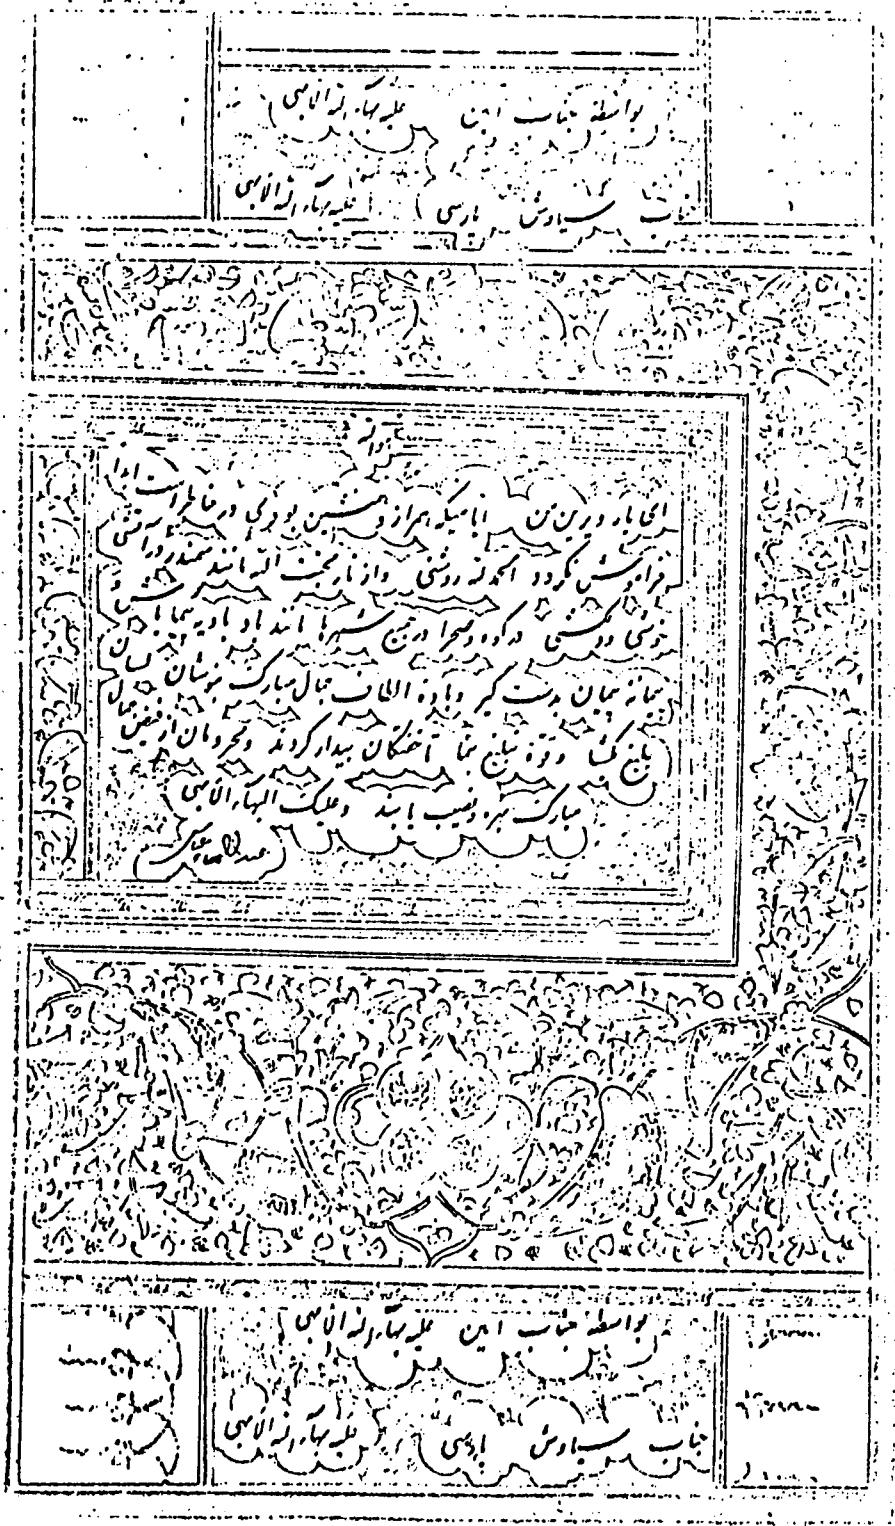 بواسطهٔ جناب امین علیه بهآء الله الابهی
جناب سیاوش پارسی علیه بهآء الله الابهی
هوالله
ای یار دیرین من ایامیکه همراز و همنشین بودیم در خاطر است ابدا
فراموش نگردد الحمد لله روشنی و از نار محبت الله مانند سمندر در آتشی
خوشی و دلکشی در کوه و صحرا و در جمیع شهرها مانند باد بادیه پیما باش و
پیمانهٔ پیمان بدست گیر و بادهٔ الطاف جمال مبارک بنوشان لسان
بلیغ بگشا و قوهٔ تبلیغ بنما تا خفتگان بیدار گردند و محرومان از فیض جمال
مبارک بهره و نصیب یابند و علیک البهآء الابهی
عبدالبهاء عباس
بواسطهٔ جناب امین علیه بهآء الله الابهی
جناب سیاوش پارسی علیه بهآء الله الابهی